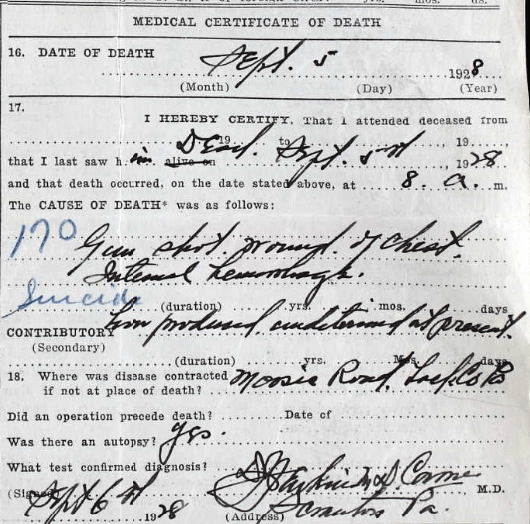 MEDICAL CERTIFICATE OF DEATH
16. DATE OF DEATH Sept. 5 1928
(Month) (Day) (Year)
17.
I HEREBY CERTIFY, That I attended deceased from
Dead. 19 to Sept. 5th, 19
that I last saw h im alive on 1928
and that death occurred, on the date stated above, at 8. a. m.
The CAUSE OF DEATH* was as follows:
170 Gun shot wound. of chest.
Internal hemorrhage.
Suicide (duration) yrs. mos. days
CONTRIBUTORY how produced undetermined at present.
(Secondary)
(duration) yrs. Mos. days
18. Where was disease contracted Moosic Road,
if not at place of death?
Did an operation precede death? Date of
Was there an autopsy? yes.
What test confirmed diagnosis?
(Signed) M.D.
Sept 6th 1928 (Address) Scranton Pa.